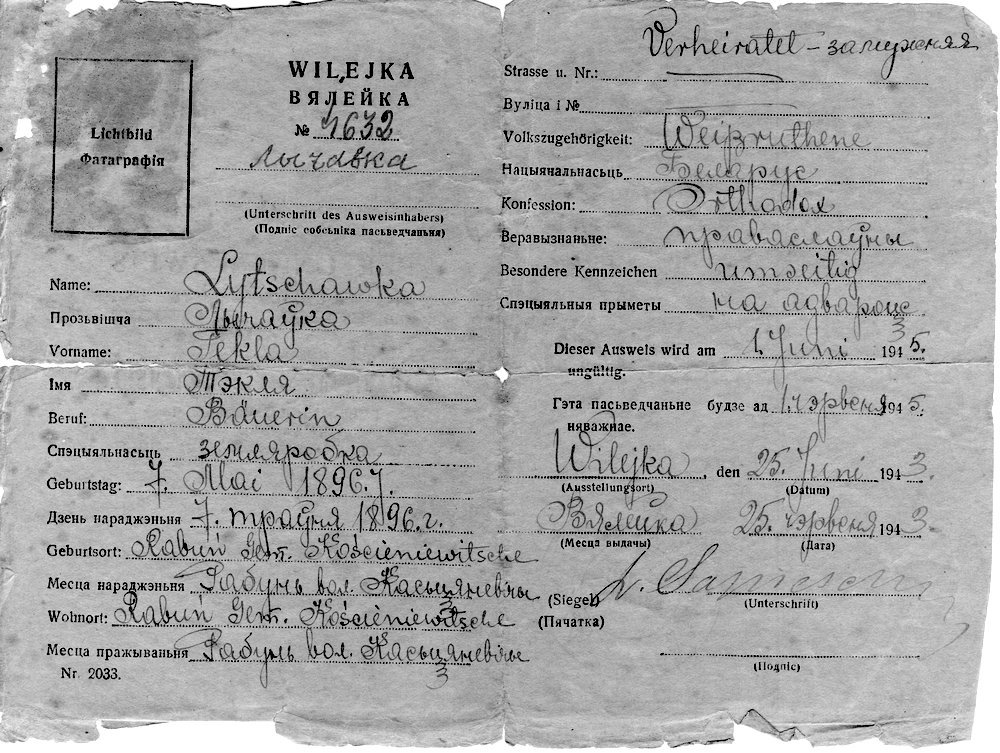 WILEJKA
ВЯЛЕЙКА
№ 1632
Лычавка
(Unterschrift des Ausweisinhabers)
(Подпіс собсьніка пасьведчаньня)
Lichtbild
Фатаграфія
Name: Lytschawka
Прозьвішча Лычаўка
Vorname: Tekla
Імя Тэкля
Beruf: Bäuerin
Спэцыяльнасьць земляробка
Geburtstag: 7. Mai 1896 J.
Дзень нараджэньня 7. траўня 1896. г.
Geburtsort: Rabuń Gem. Kościeniewitsche
Месца нараджэньня Рабунь вол. Касьцяневічы
Wohnort: Rabuń Gem. Kościeniewitsche
Месца пражываньня Рабунь вол. Касьцяневічы
Nr. 2033.
Verheiratet – замужняя
Strasse u. Nr.:
Вуліца і №
Volkszugehörigkeit: Weißruthene
Нацыянальнасьць Беларус
Konfession: Orthodox
Веравызнаньне: праваслаўны
Besondere Kennzeichen umseitig
Спэцыяльныя прыметы на адвароце
Dieser Ausweis wird am 1. Juni 1945.
ungültig.
Гэта пасьведчаньне будзе ад 1. чэрвеня 1945.
няважнае.
Wilejka, den 25. Juni 1943.
(Ausstellungsort) (Datum)
Вялейка 25. чэрвеня 1943.
(Месца выдачы) (Дата)
(Siegel)
(Unterschrift)
(Пячатка)
(Подпіс)